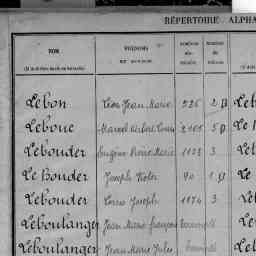 RÉPERTOIRE ALPHA
NOM PRÉNOMS
Lebon Léon Jean Marie 526 2 D Leb
Lebouc Marcel Albert Louis 2105 5 D Le
Lebouder Eugène Pierre Marie 1128 3 Le
Le Bouder Joseph Victor 90 1 D Le
Lebouder Louis Joseph 1174 3 Leb
Leboulanger Jean Marie François Exempté Le
Leboulanger Jean Marie Jules Exempté Le